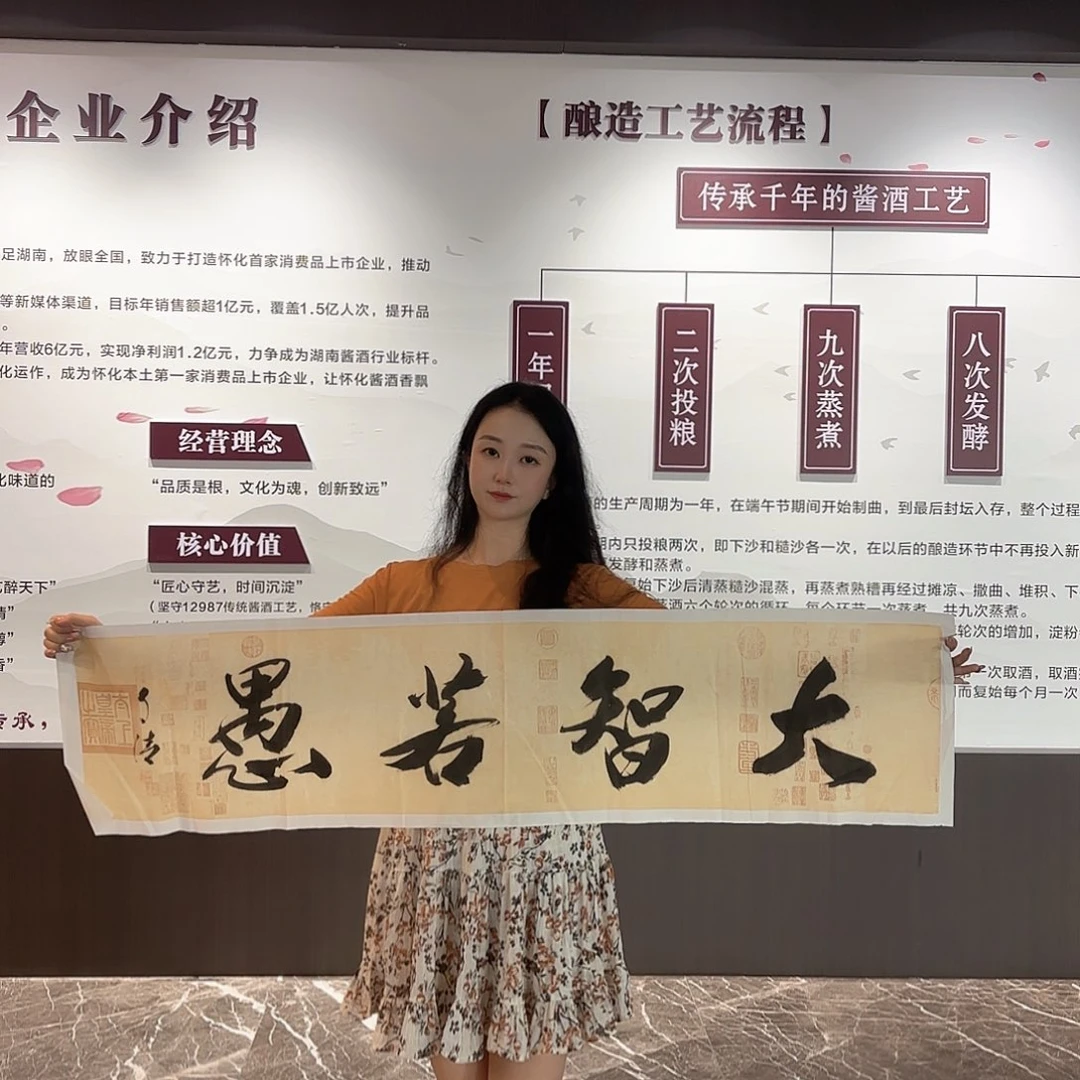 企业介绍
足湖南，放眼全国，致力于打造怀化首家消费品上市企业，推动
等新媒体渠道，目标年销售额超1亿元，覆盖1.5亿人次，提升品
。
年营收6亿元，实现净利润1.2亿元，力争成为湖南酱酒行业标杆。
化运作，成为怀化本土第一家消费品上市企业，让怀化酱酒香飘
经营理念
化味道的
“品质是根，文化为魂，创新致远”
核心价值
艺醉天下”
“匠心守艺，时间沉淀”
（坚守12987传统酱酒工艺，恪
传承，
【酿造工艺流程】
传承千年的酱酒工艺
一年
二次投粮
九次蒸煮
八次发酵
的生产周期为一年，在端午节期间开始制曲，到最后封坛入存，整个过程
期内只投粮两次，即下沙和糙沙各一次，在以后的酿造环节中不再投入新
发酵和蒸煮。
始下沙后清蒸糙沙混蒸，再蒸煮熟糟再经过摊凉、撒曲、堆积、下
蒸酒六个轮次的循环，每个环节一次蒸煮，共九次蒸煮。
轮次的增加，淀粉
次取酒，取酒
而复始每个月一次
大智若愚